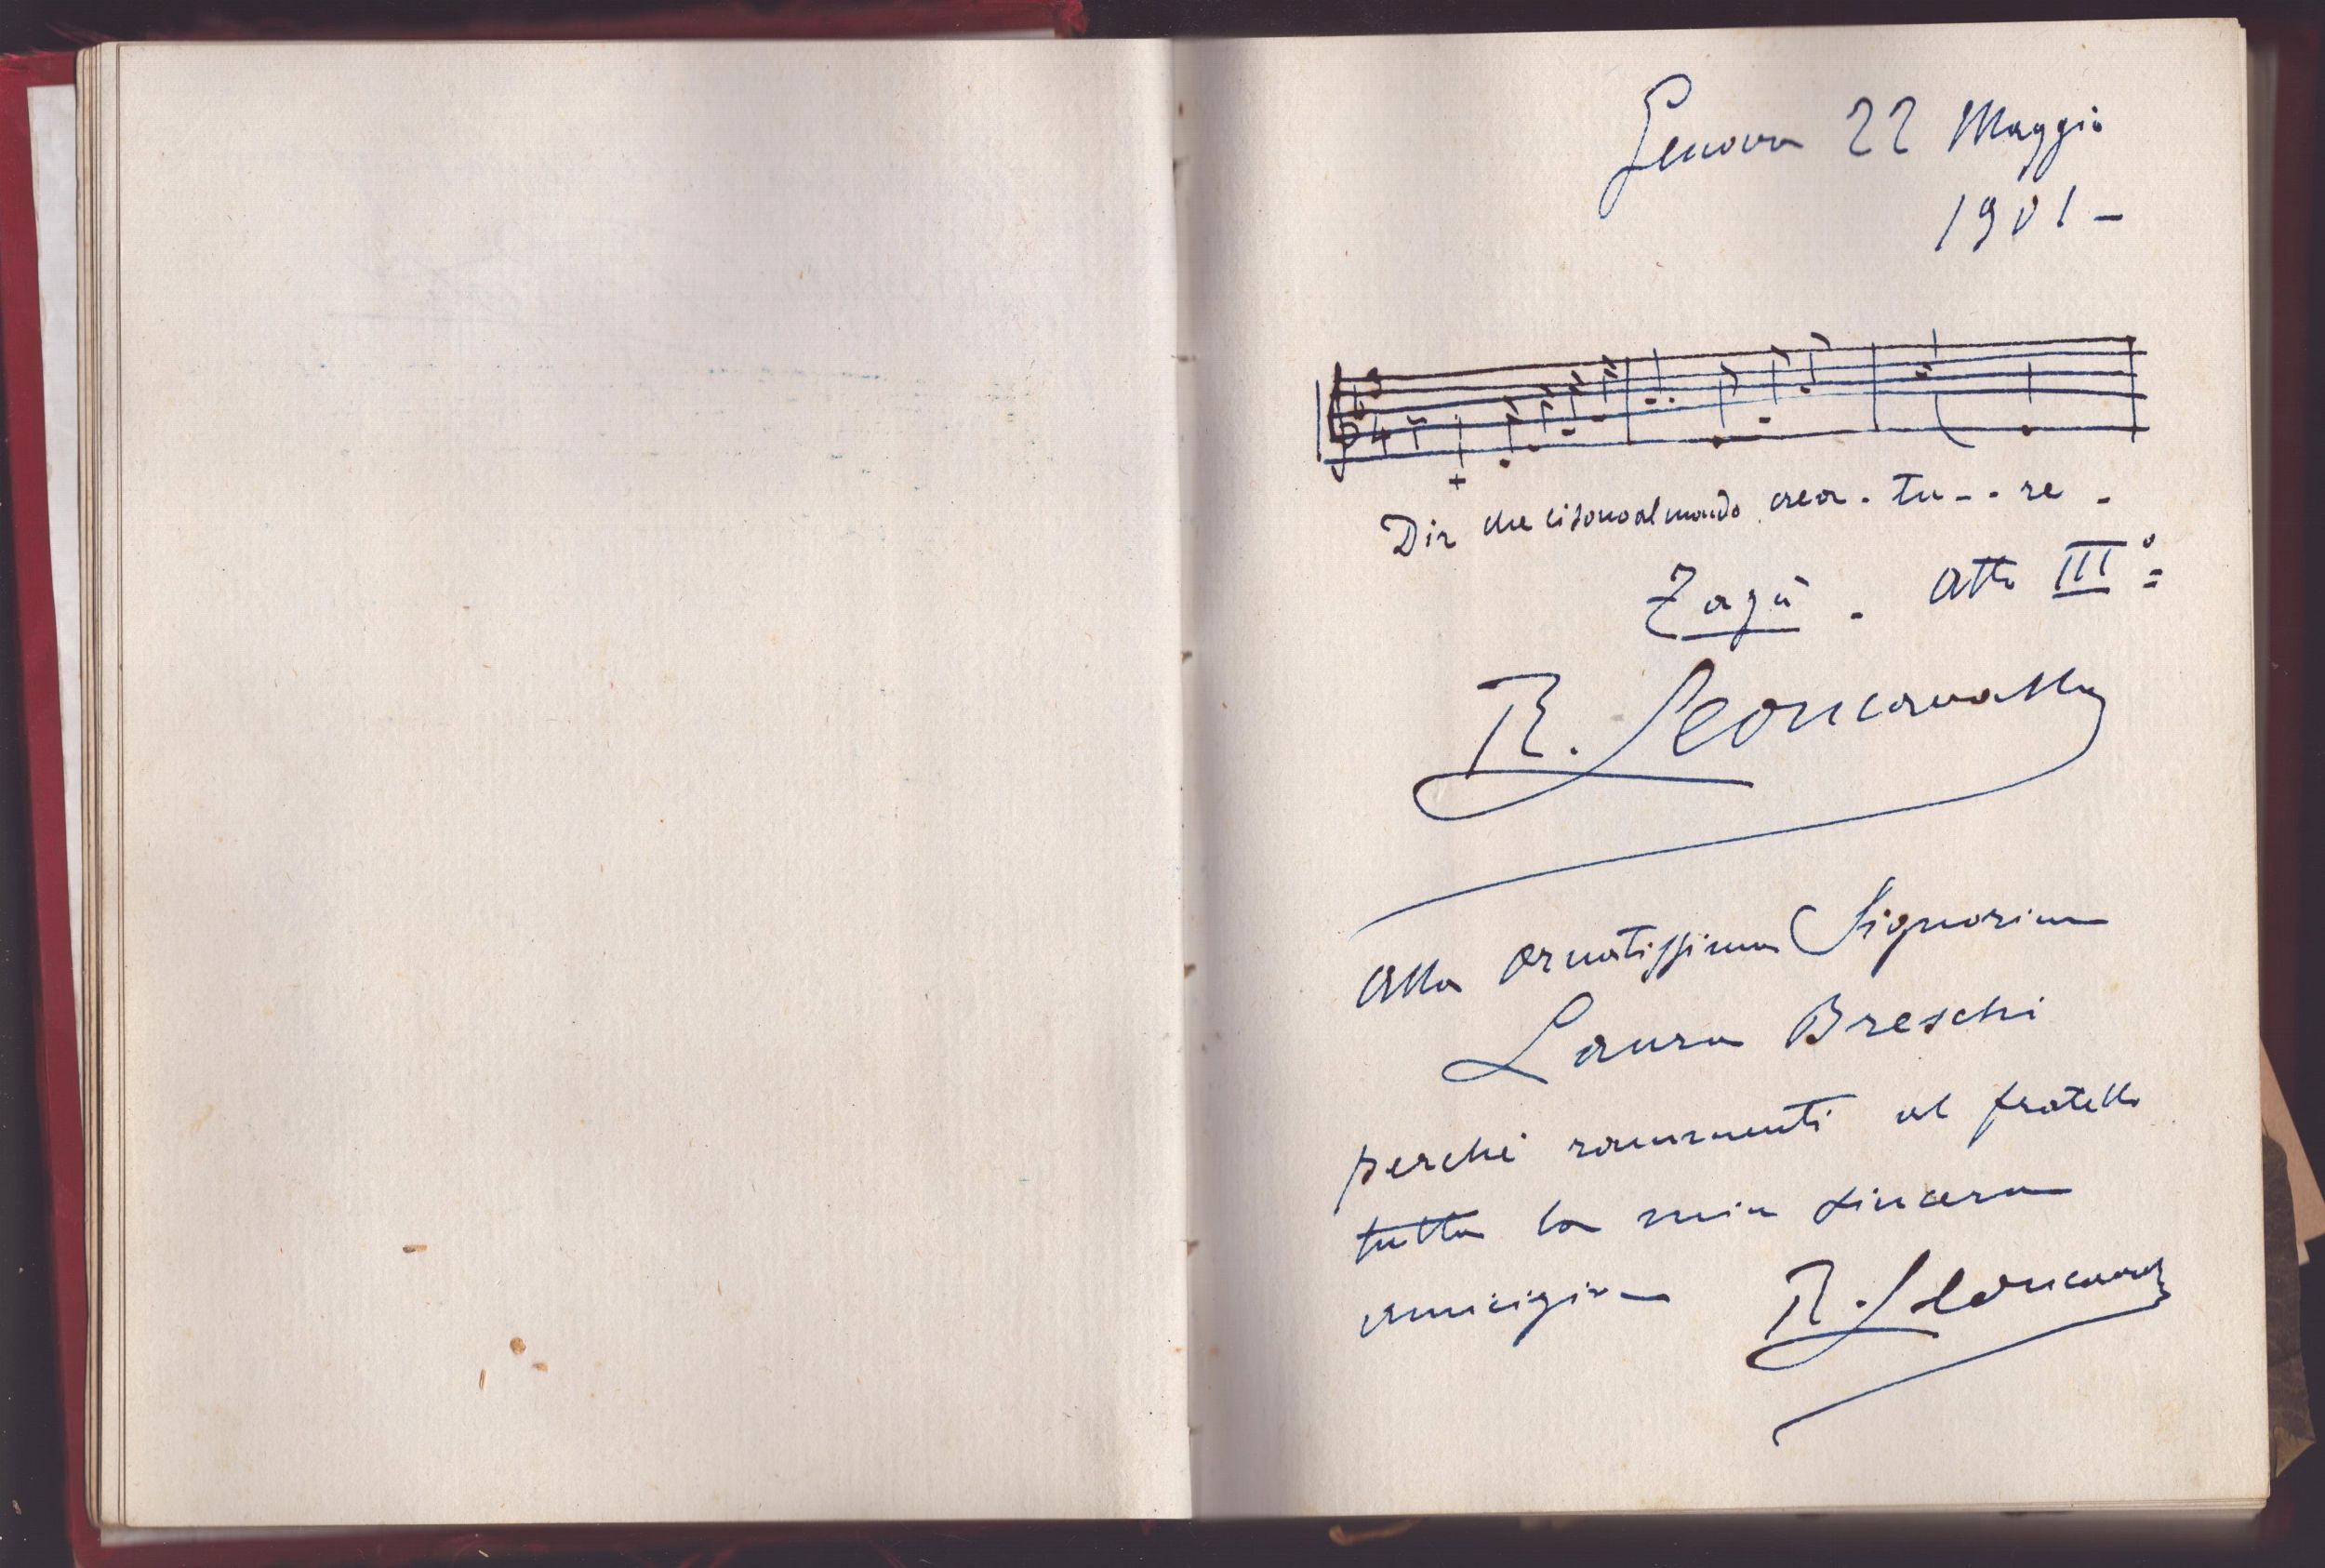 Genova 22 Maggio
1901 –
Dir che ci sono al mondo crea - tu - - re -
Zazà . Atto III°=
R. Leoncavallo
Alla ornatissima Signorina
Laura Breschi
perché rammenti al fratello
tutta la mia sincera
amicizia R. Leoncavallo